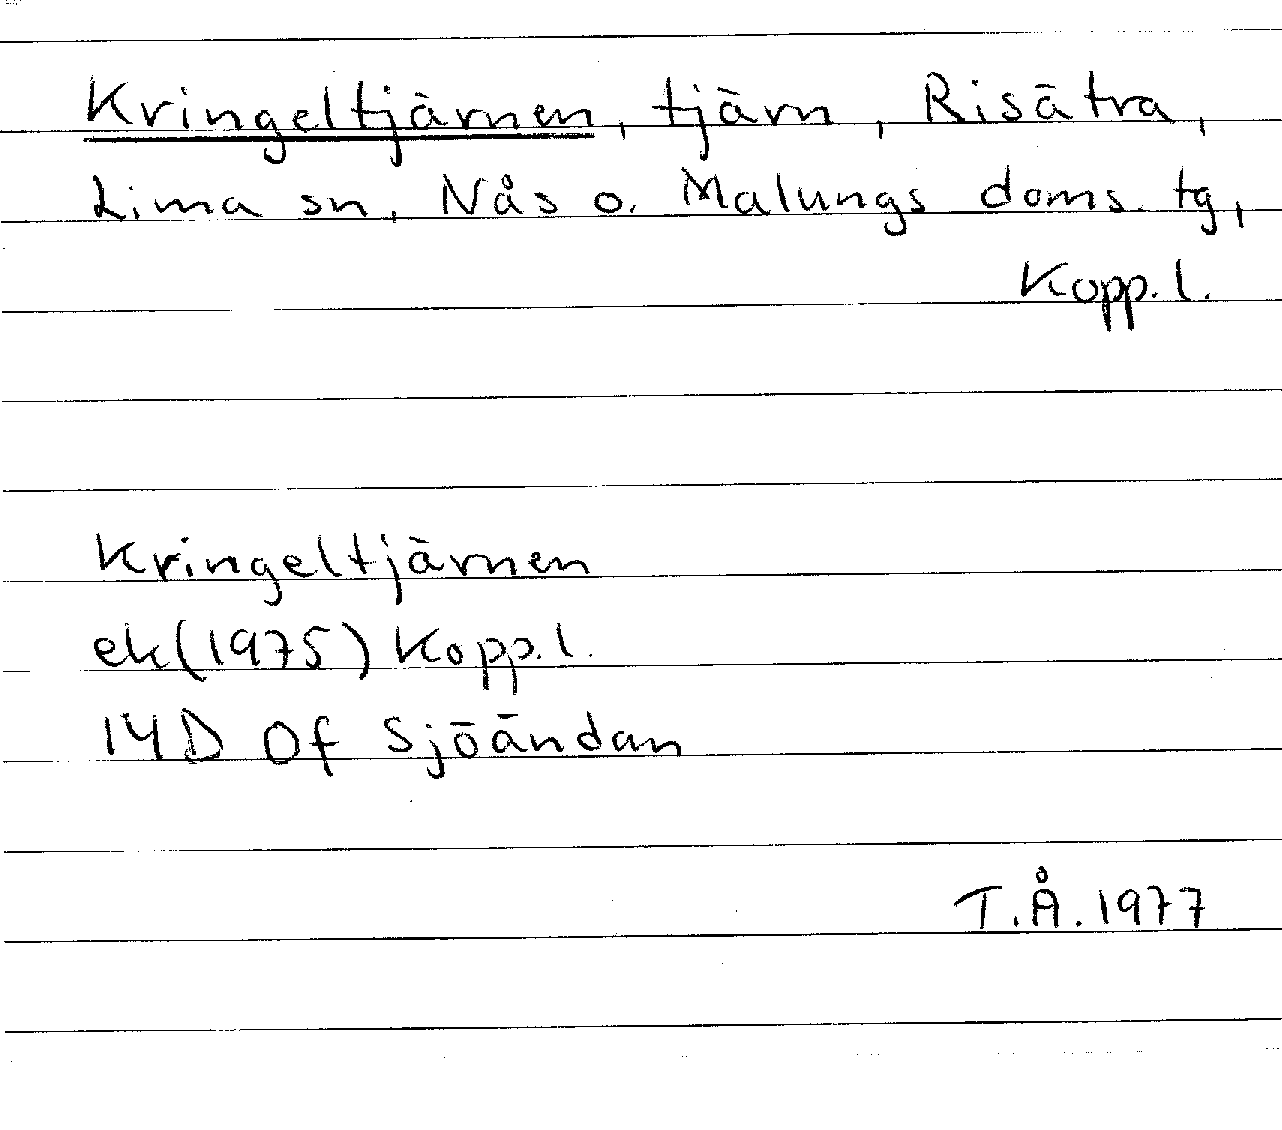 Kringeltjärnen, tjärn, Risätra,
Lima sn, Nås o. Malungs doms. tg,
Kopp. l.
Kringeltjärnen
ek (1975) Kopp. l.
14D 0f Sjöändan
T.Å. 1977